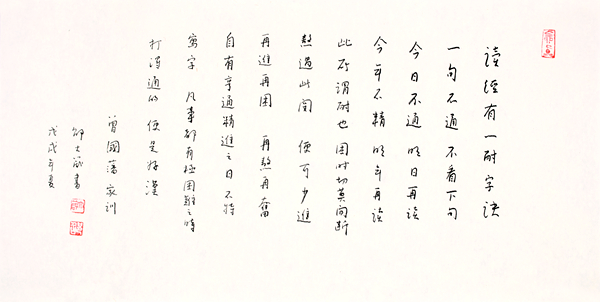 讀經有一耐字訣
一句不通 不看下句
今日不通 明日再讀
今年不精 明年再讀
此所謂耐也 困時切莫間斷
熬過此關 便可少進
再進再困 再熬再奮
自有亨通精進之日 不特
寫字 凡事都有極困難之時
打得通的 便是好漢
曾國藩家訓
邵大箴書
戊戌年夏